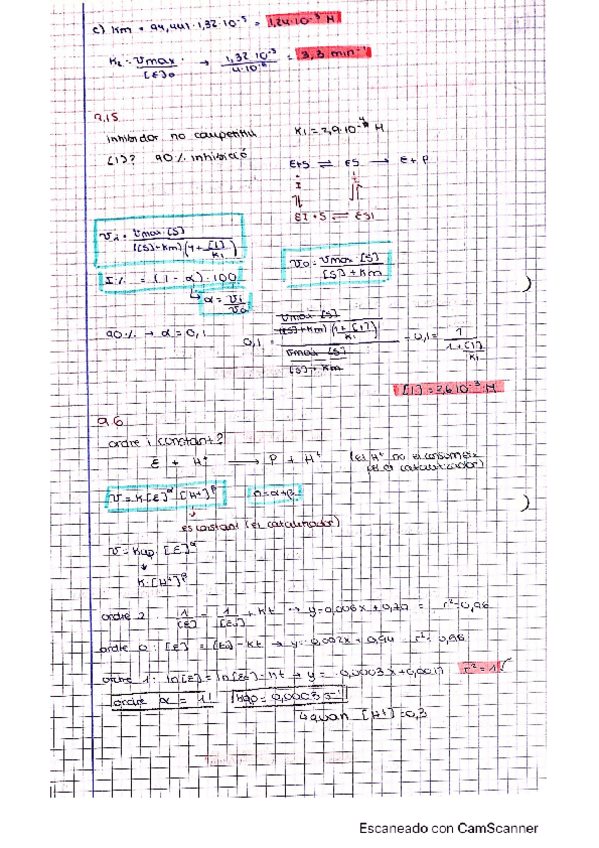 c) Km = 94,441 · 1,32·10⁻⁵ = 1,24·10⁻³ M
K₂ = vmax / [E]₀ → 1,32·10⁻⁵ / 4·10⁻⁶ = 3,3 min⁻¹
9.15
inhibidor no competitiu K₁ = 2,9·10⁻⁴ M
[I]? 90% inhibició
E+S ⇌ ES → E + P
+
I I
EI + S ⇌ ESI
vi = vmax·[S] / ([S]+Km)(1+[I]/K₁)
v₀ = vmax·[S] / [S]+Km
I% = (1 - α)·100
↳ α = vi / v₀
90% → α = 0,1
0,1 = (vmax·[S] / ([S]+Km)(1+[I]/K₁)) / (vmax·[S] / [S]+Km) → 0,1 = 1 / (1+[I]/K₁)
[I] = 2,6·10⁻³ M
9.6
ordre i constant?
E + H⁺ → P + H⁺ (el H⁺ no el consumeix
és el catalitzador)
v = K[E]^α [H⁺]^β n = α+β
es constant (el catalitzador)
v = Kap · [E]^α
↓
K·[H⁺]^β
ordre 2: 1/[E] = 1/[E₀] + Kt → y = 0,006x + 0,70 = r² = 0,96
ordre 0: [E] = [E₀] - Kt → y = 0,002x + 0,94 r² = 0,96
ordre 1: ln[E] = ln[E₀] - Kt → y = 0,0003x + 0,0017 r² = 1 ✓
ordre α = 1! Kap = 0,0003 s⁻¹
↳ quan [H⁺] = 0,3
Escaneado con CamScanner